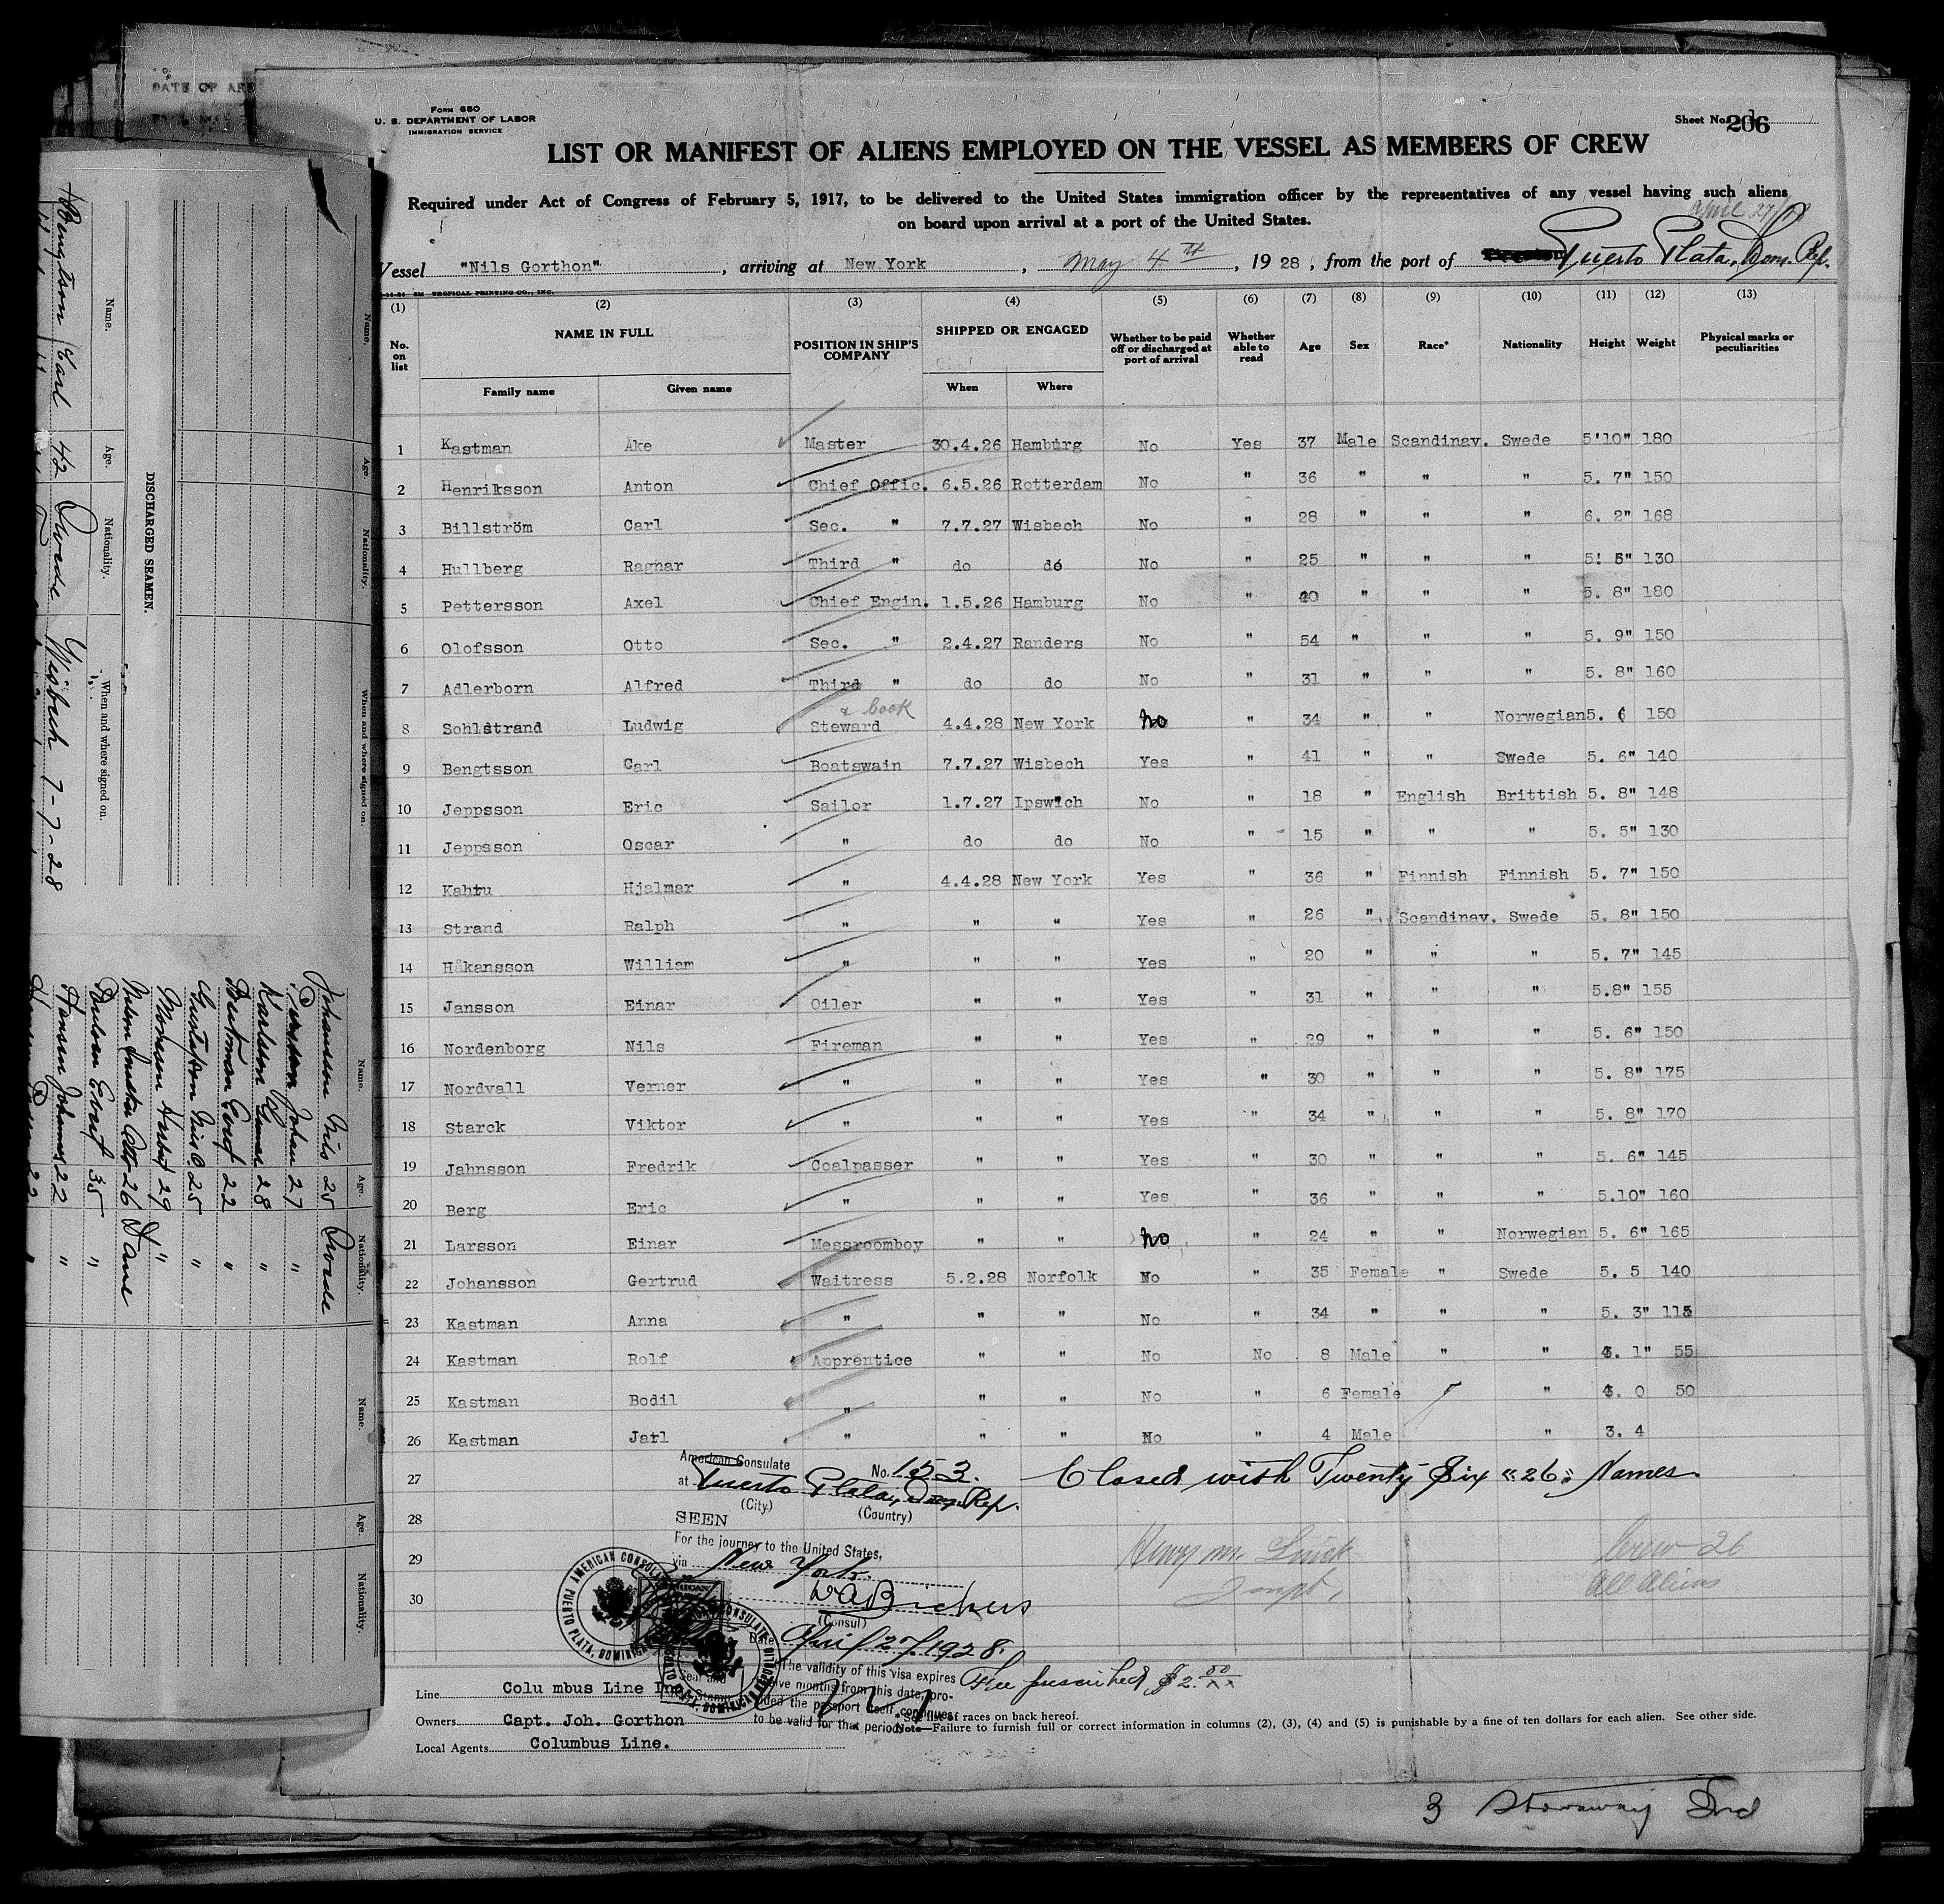 DATE OF
Form 680
U. S. DEPARTMENT OF LABOR
IMMIGRATION SERVICE
Sheet No. 206
LIST OR MANIFEST OF ALIENS EMPLOYED ON THE VESSEL AS MEMBERS OF CREW
Required under Act of Congress of February 5, 1917, to be delivered to the United States immigration officer by the representatives of any vessel having such aliens
on board upon arrival at a port of the United States.
April 27/28
Vessel "Nils Gorthon", arriving at New York, May 4th, 1928, from the port of Puerto Plata, Dom. Rep.
TROPICAL PRINTING CO., INC.
(1) (2) (3) (4) (5) (6) (7) (8) (9) (10) (11) (12) (13)
No. on list NAME IN FULL POSITION IN SHIP'S COMPANY SHIPPED OR ENGAGED Whether to be paid off or discharged at port of arrival Whether able to read Age Sex Race* Nationality Height Weight Physical marks or peculiarities
Family name Given name When Where
1 Kastman Åke Master 30.4.26 Hamburg No Yes 37 Male Scandinav. Swede 5'10" 180
2 Henriksson Anton Chief Offic. 6.5.26 Rotterdam No " 36 " " " 5. 7" 150
3 Billström Carl Sec. " 7.7.27 Wisbech No " 28 " " " 6. 2" 168
4 Hullberg Ragnar Third " do do No " 25 " " " 5! 5" 130
5 Pettersson Axel Chief Engin. 1.5.26 Hamburg No " 40 " " " 5. 8" 180
6 Olofsson Otto Sec. " 2.4.27 Randers No " 54 " " " 5. 9" 150
7 Adlerborn Alfred Third " do do No " 31 " " " 5. 8" 160
8 Sohlstrand Ludwig Steward & Cook 4.4.28 New York No " 34 " " Norwegian 5. 6 150
9 Bengtsson Carl Boatswain 7.7.27 Wisbech Yes " 41 " " Swede 5. 6" 140
10 Jeppsson Eric Sailor 1.7.27 Ipswich No " 18 " English Brittish 5. 8" 148
11 Jeppsson Oscar " do do No " 15 " " " 5. 5" 130
12 Kahtu Hjalmar " 4.4.28 New York Yes " 36 " Finnish Finnish 5. 7" 150
13 Strand Ralph " " " Yes " 26 " Scandinav. Swede 5. 8" 150
14 Håkansson William " " " Yes " 20 " " " 5. 7" 145
15 Jansson Einar Oiler " " Yes " 31 " " " 5.8" 155
16 Nordenborg Nils Fireman " " Yes " 29 " " " 5. 6" 150
17 Nordvall Verner " " " Yes " 30 " " " 5. 8" 175
18 Starck Viktor " " " Yes " 34 " " " 5. 8" 170
19 Jahnsson Fredrik Coalpasser " " Yes " 30 " " " 5. 6" 145
20 Berg Eric " " " Yes " 36 " " " 5.10" 160
21 Larsson Einar Messroomboy " " No " 24 " " Norwegian 5. 6" 165
22 Johansson Gertrud Waitress 5.2.28 Norfolk No " 35 Female " Swede 5. 5 140
23 Kastman Anna " " " No " 34 " " " 5. 3" 115
24 Kastman Rolf Apprentice " " No No 8 Male " " 4. 1" 55
25 Kastman Bodil " " " No " 6 Female " 4. 0 50
26 Kastman Jarl " " " No " 4 Male " 3. 4
27
28
29
30
American Consulate
No. 153.
at Puerto Plata, Dom. Rep.
(City) (Country)
SEEN
For the journey to the United States,
via New York.
W A Bickers
(Consul)
Date April 27/1928.
The validity of this visa expires
twelve months from this date, provided the passport itself continues
to be valid for that period.
Fee prescribed $2.00
AMERICAN CONSULATE PUERTO PLATA, DOMINICAN
Closed with Twenty Six "26" Names.
Henry M.
Inspt.
Crew 26
All Aliens
Line Colu mbus Line Inc.
Owners Capt. Joh. Gorthon
Local Agents Columbus Line.
See list of races on back hereof.
Note—Failure to furnish full or correct information in columns (2), (3), (4) and (5) is punishable by a fine of ten dollars for each alien. See other side.
3 Stowaway
DISCHARGED SEAMEN.
Name. Age. Nationality. When and where signed on.
Bengtson Carl 42 Swede Wisbech 7-7-28
Name. Age. Nationality.
Johansson Nils 25 Swede
Persson Johan 27 "
Karlson Gunnar 28 "
Bertman Gorf 22 "
Gustafson Nils O. 25 "
Monsson Herbert 29 "
Otto 26 Dane
Poulsen Evert 35 "
Hansen Johannes 22 "
22 "
Name. Age. Nationality.